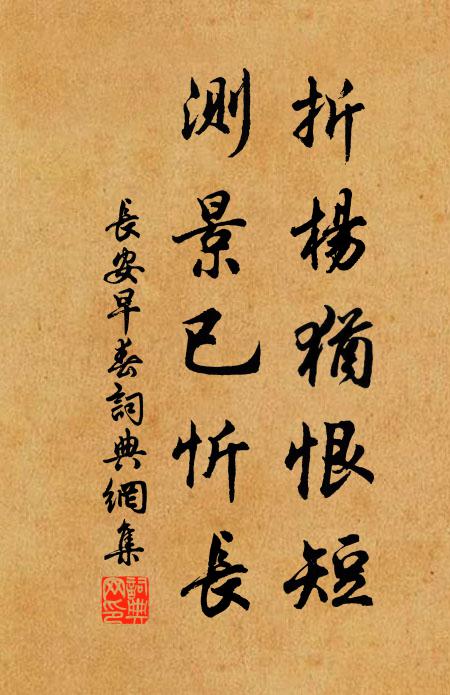 折楊猶恨短
測景已忻長
長安早春詞典網集
詞典網印